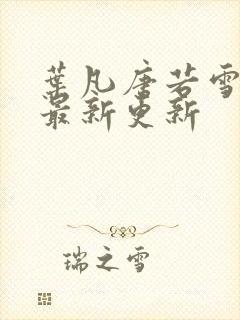 葉凡唐若雪
最新更新
瑞之雪